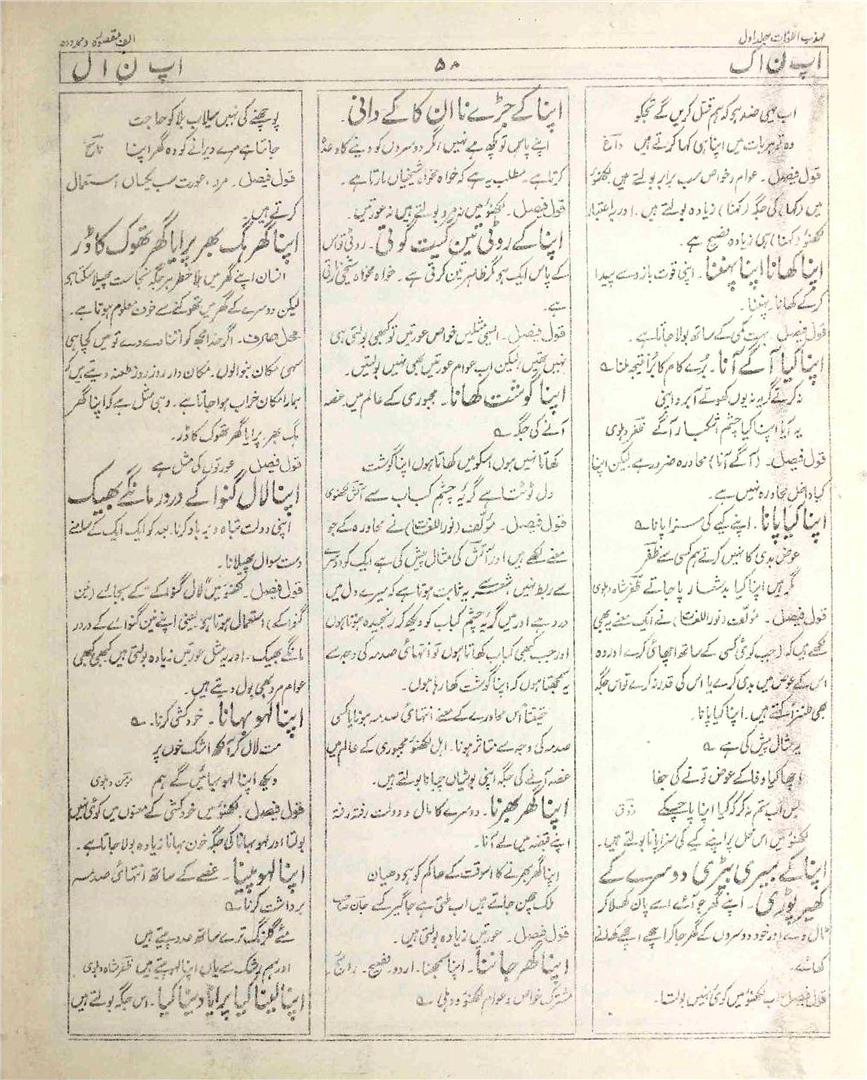 مہذب اللغات جلد اول
الف مقصورہ و ممدودہ
اپ ن اک
۵۸
اپ ن ال
اب یہی ضد ہے کہ ہم قتل کریں گے تجکو
وہ تو ہر بات میں اپنا ہی کہا کرتے ہیں داغ
قول فیصل۔ عوام و خواص سب برابر بولتے ہیں لکھنؤ
میں (کہا) کی جگہ (کہنا) زیادہ بولتے ہیں۔ اور بہ اعتبار
لکھنؤ (کہنا) ہی زیادہ فصیح ہے۔
اپنا کھانا اپنا پہننا۔ اپنی قوت بازو سے پیدا
کر کے کھانا۔ پہننا۔
قول فیصل۔ بہت کمی کے ساتھ بولا جاتا ہے۔
اپنا کیا آگے آنا۔ برے کام کا برا نتیجہ ملنا ؎
نہ کرتے گریہ نہ یوں کھوتے آبرو اپنی
یہ آیا اپنا کیا چشم اشکبار آگے ظفر دہلوی
قول فیصل۔ (آگے آنا) محاورہ ضرور ہے لیکن اپنا
کیا داخل محاورہ نہیں ہے۔
اپنا کیا پانا۔ اپنے کیے کی سزا پانا ؎
عوض بدی کا نہیں کرتے ہم کسی سے ظفر
گر ہیں اپنا کیا بدشعار پا جاتے ظفر شاہ دہلوی
قول فیصل۔ مؤلف (نور اللغات) نے ایک معنے یہ بھی
لکھے ہیں کہ (جب کوئی کسی کے ساتھ اچھائی کرے اور وہ
اس کے عوض میں بدی کرے یا اس کی قدر نہ کرے تو اس جگہ
بھی طنزاً کہتے ہیں۔ اپنا کیا پانا۔
یہ مثال پیش کی ہے ؎
اچھا کیا وفا کے عوض تو نے کی جفا
بس اب ستم نہ کر کہ کیا اپنا پا چکے ذوق
لکھنؤ میں اس محل پر اپنے کیے کی سزا پانا بولتے ہیں۔
اپنا کے بیری بیٹری دوسرے کے
کھیر پوڑی۔ اپنے گھر جو آئے اسے پان کھلا کر
ٹال دے اور خود دوسروں کے گھر جا کر اچھے اچھے کھانے
کھائے۔
قول فیصل۔ اب لکھنؤ میں کوئی نہیں بولتا۔
اپنا کے جڑے نا ان کا کے دانی۔
اپنے پاس تو کچھ ہے نہیں اگر دوسروں کو دینے کا وعدہ
کرتا ہے۔ مطلب یہ ہے کہ خواہ مخواہ شیخیاں مارتا ہے۔
قول فیصل۔ لکھنؤ میں نہ مرد بولتے ہیں نہ عورتیں۔
اپنا کے روٹی تین گیت گوتی۔ روٹی تو اس
کے پاس ایک ہے مگر ظاہر تین کرتی ہے۔ خواہ مخواہ شیخی مارتی
ہے۔
قول فیصل۔ ایسی مثلیں خواص عورتیں تو کبھی بولتی ہی
نہیں تھیں لیکن اب عوام عورتیں بھی نہیں بولتیں۔
اپنا گوشت کھانا۔ مجبوری کے عالم میں غصہ
آنے کی جگہ ؎
کھاتا نہیں ہوں اسکو میں کھاتا ہوں اپنا گوشت
دل ٹوٹتا ہے گریۂ چشم کباب سے آتش لکھنوی
قول فیصل۔ مؤلف (نور اللغات) نے محاورہ کے جو
معنے لکھے ہیں اور آتش کی مثال پیش کی ہے ایک کو دوسرے
سے ربط نہیں، شعر سے یہ ثابت ہوتا ہے کہ میرے دل میں
درد ہے اور میں گریۂ چشم کباب کو دیکھ کر رنجیدہ ہوتا ہوں
اور جب کبھی کباب کھاتا ہوں تو انتہائی صدمہ کی وجہ سے
یہ سمجھتا ہوں کہ اپنا گوشت کھا رہا ہوں۔
حقیقتاً اس محاورے کے معنے انتہائی صدمہ ہونا یا کسی
صدمہ کی وجہ سے متاثر ہونا۔ اہل لکھنؤ مجبوری کے عالم میں
غصہ آنے کی جگہ اپنی بوٹیاں چبانا بولتے ہیں۔
اپنا گھر بھرنا۔ دوسرے کا مال و دولت رفتہ رفتہ
اپنے قبضہ میں لے آنا۔
اپنا گھر بھرنے کا اسوقت کے حاکم کو ہے دھیان
ملک چھن جاتے ہیں اب ملتی ہے جاگیر کسے جان صاحب
قول فیصل۔ عورتیں زیادہ بولتی ہیں۔
اپنا گھر جاننا۔ اپنا سمجھنا۔ اردو۔ فصیح۔ رائج۔
مشترک خواص و عوام لکھنؤ و دہلی ؎
پوچھنے کی نہیں سیلاب بلا کو حاجت
جانتا ہے مرے ویرانے کو وہ گھر اپنا ناسخ
قول فیصل۔ مرد، عورت سب یکساں استعمال
کرتے ہیں۔
اپنا گھر ہگ بھر پرایا گھر تھوک کا ڈر
انسان اپنے گھر میں بلا خطر ہر جگہ نجاست پھیلا سکتا ہے
لیکن دوسرے کے گھر میں تھوکنے سے خوف معلوم ہوتا ہے۔
محل صرف۔ اگر خدا مجھ کو اتنا دے دے تو میں کچا ہی
سہی مکان بنوالوں۔ مکان دار روز روز طعنہ دیتے ہیں کہ
ہمارا مکان خراب ہوا جاتا ہے۔ وہی مثل ہے کہ اپنا گھر
ہگ بھر۔ پرایا گھر تھوک کا ڈر۔
قول فیصل عورتوں کی مثل ہے
اپنا لال گنوا کے در در مانگے بھیک
اپنی دولت تباہ و برباد کرنا۔ بعد کو ایک ایک کے سامنے
دست سوال پھیلانا۔
قول فیصل۔ لکھنؤ میں "لال گنوا کے" کے بجائے (نین
گنوا کے) استعمال ہوتا ہے یعنی اپنے نین گنوا کے در در
مانگے بھیک۔ اور یہ مثل عورتیں زیادہ بولتی ہیں کبھی کبھی
عوام مرد بھی بول دیتے ہیں۔
اپنا لہو بہانا۔ خودکشی کرنا۔ ؎
مت لال کر آنکھ اشک خوں پر
دیکھ اپنا لہو بہائیں گے ہم مومن دہلوی
قول فیصل۔ لکھنؤ میں خودکشی کے معنوں میں کوئی نہیں
بولتا اور لہو بہانا کی جگہ خون بہانا زیادہ بولا جاتا ہے۔
اپنا لہو پینا۔ غصے کے ساتھ انتہائی صدمہ
برداشت کرنا۔ ؎
مئے گلرنگ ترے ساتھ عدو پیتے ہیں
اور ہم رشک سے یاں اپنا لہو پیتے ہیں ظفر شاہ دہلوی
اپنا لینا کیا پرایا دینا کیا۔ اس جگہ بولتے ہیں